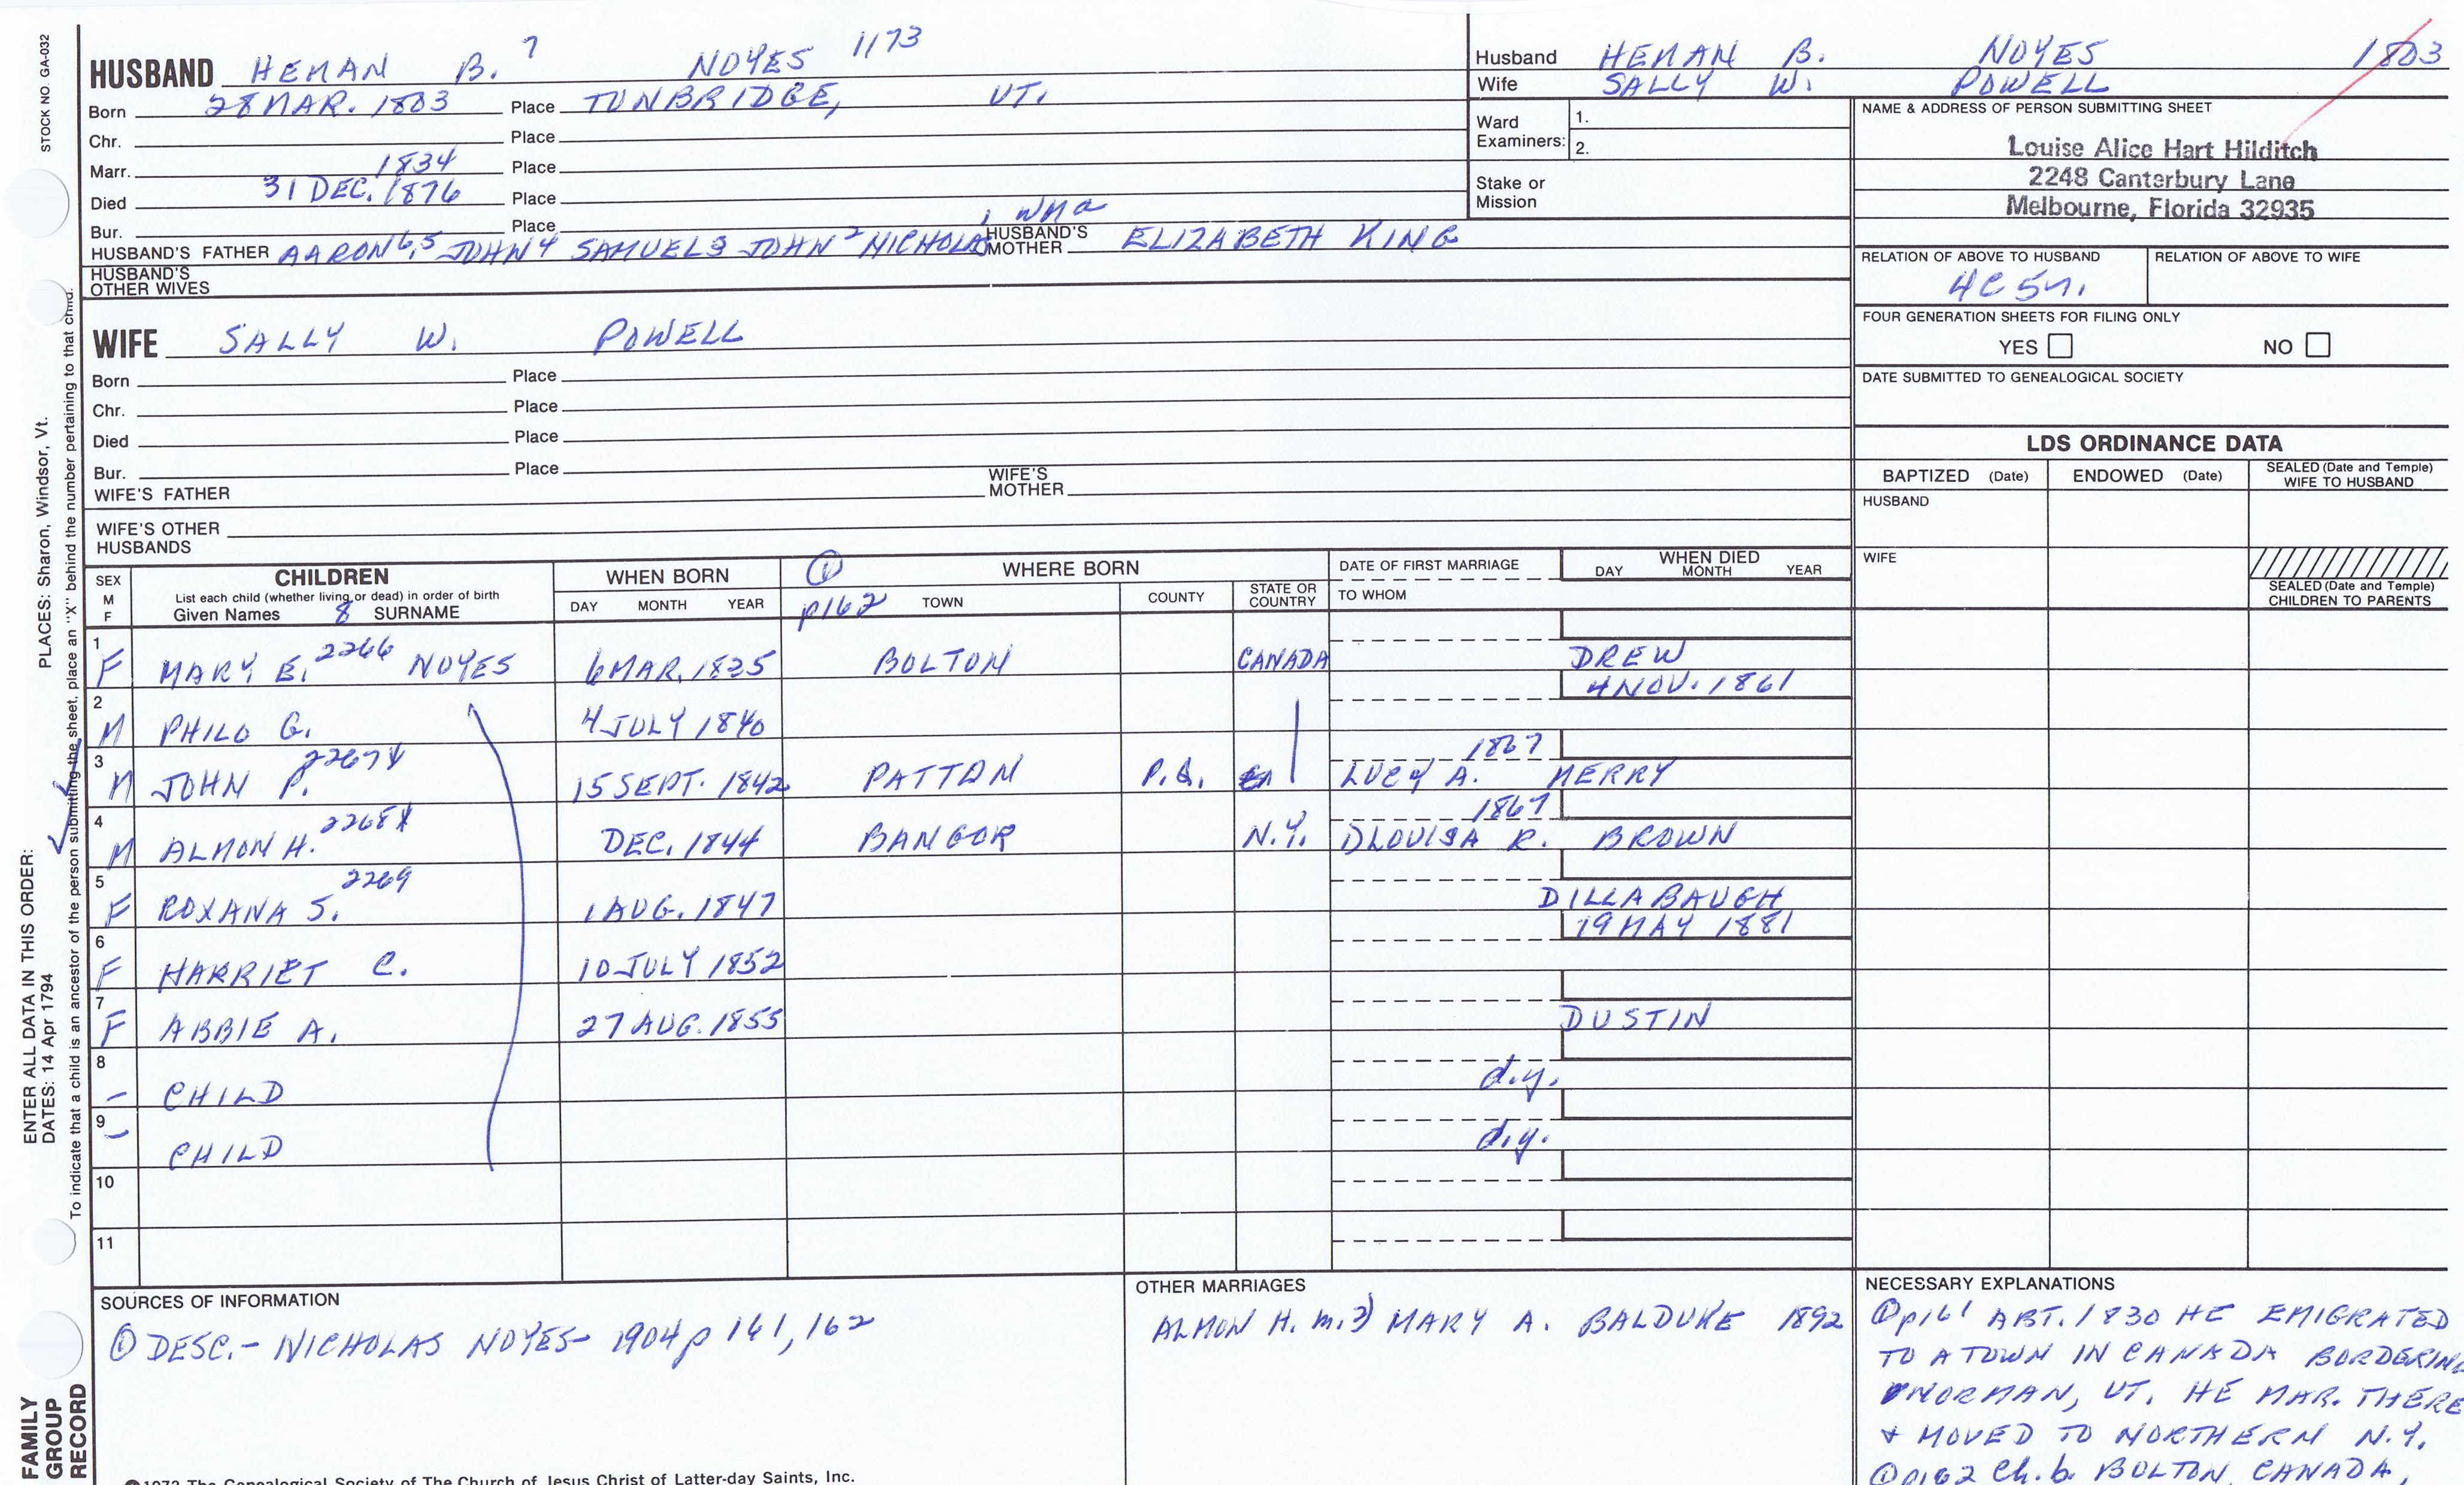 STOCK NO. GA-032
HUSBAND HEMAN B. 7 NOYES 1173
Born 28 MAR. 1803 Place TUNBRIDGE, VT.
Chr. Place
Marr. 1834 Place
Died 31 DEC. 1876 Place
Bur. Place
HUSBAND'S FATHER AARON 6,5 JOHN 4 SAMUEL 3 JOHN 2 NICHOLAS 1 HUSBAND'S MOTHER ELIZABETH KING
HUSBAND'S OTHER WIVES
Husband HEMAN B. NOYES 1803
Wife SALLY W. POWELL
Ward Examiners: 1.
2.
Stake or Mission
NAME & ADDRESS OF PERSON SUBMITTING SHEET
Louise Alice Hart Hilditch
2248 Canterbury Lane
Melbourne, Florida 32935
RELATION OF ABOVE TO HUSBAND RELATION OF ABOVE TO WIFE
4C5r.
FOUR GENERATION SHEETS FOR FILING ONLY
YES NO
DATE SUBMITTED TO GENEALOGICAL SOCIETY
WIFE SALLY W. POWELL
Born Place
Chr. Place
Died Place
Bur. Place
WIFE'S FATHER WIFE'S MOTHER
WIFE'S OTHER HUSBANDS
LDS ORDINANCE DATA
BAPTIZED (Date) ENDOWED (Date) SEALED (Date and Temple) WIFE TO HUSBAND
HUSBAND
WIFE
SEALED (Date and Temple) CHILDREN TO PARENTS
SEX M F
CHILDREN
List each child (whether living or dead) in order of birth
Given Names 8 SURNAME
WHEN BORN
DAY MONTH YEAR
① p162
WHERE BORN
TOWN COUNTY STATE OR COUNTRY
DATE OF FIRST MARRIAGE
TO WHOM
WHEN DIED
DAY MONTH YEAR
1 F MARY E. 2266 NOYES 6 MAR. 1835 BOLTON CANADA DREW
4 NOV. 1861
2 M PHILO G. 4 JULY 1840
3 M JOHN P. 2267 15 SEPT. 1842 PATTON P.Q. 1867 LUCY A. MERRY
4 M ALMON H. 2268 DEC. 1844 BANGOR N.Y. 1867 DLOUISA R. BROWN
5 F ROXANA S. 2269 1 AUG. 1847 DILLABAUGH
19 MAY 1881
6 F HARRIET C. 10 JULY 1852
7 F ABBIE A. 27 AUG. 1855 DUSTIN
8 – CHILD d.y.
9 – CHILD d.y.
10
11
SOURCES OF INFORMATION
① DESC.- NICHOLAS NOYES- 1904 p 161, 162
OTHER MARRIAGES
ALMON H. m. 2) MARY A. BALDUKE 1892
NECESSARY EXPLANATIONS
① p161 ABT. 1830 HE EMIGRATED
TO A TOWN IN CANADA BORDERING
NORMAN, VT. HE MAR. THERE
+ MOVED TO NORTHERN N.Y.
① p162 Ch. b. BOLTON, CANADA,
©1972 The Genealogical Society of The Church of Jesus Christ of Latter-day Saints, Inc.
ENTER ALL DATA IN THIS ORDER:
DATES: 14 Apr 1794 PLACES: Sharon, Windsor, Vt.
To indicate that a child is an ancestor of the person submitting the sheet, place an "X" behind the number pertaining to that child.
FAMILY
GROUP
RECORD